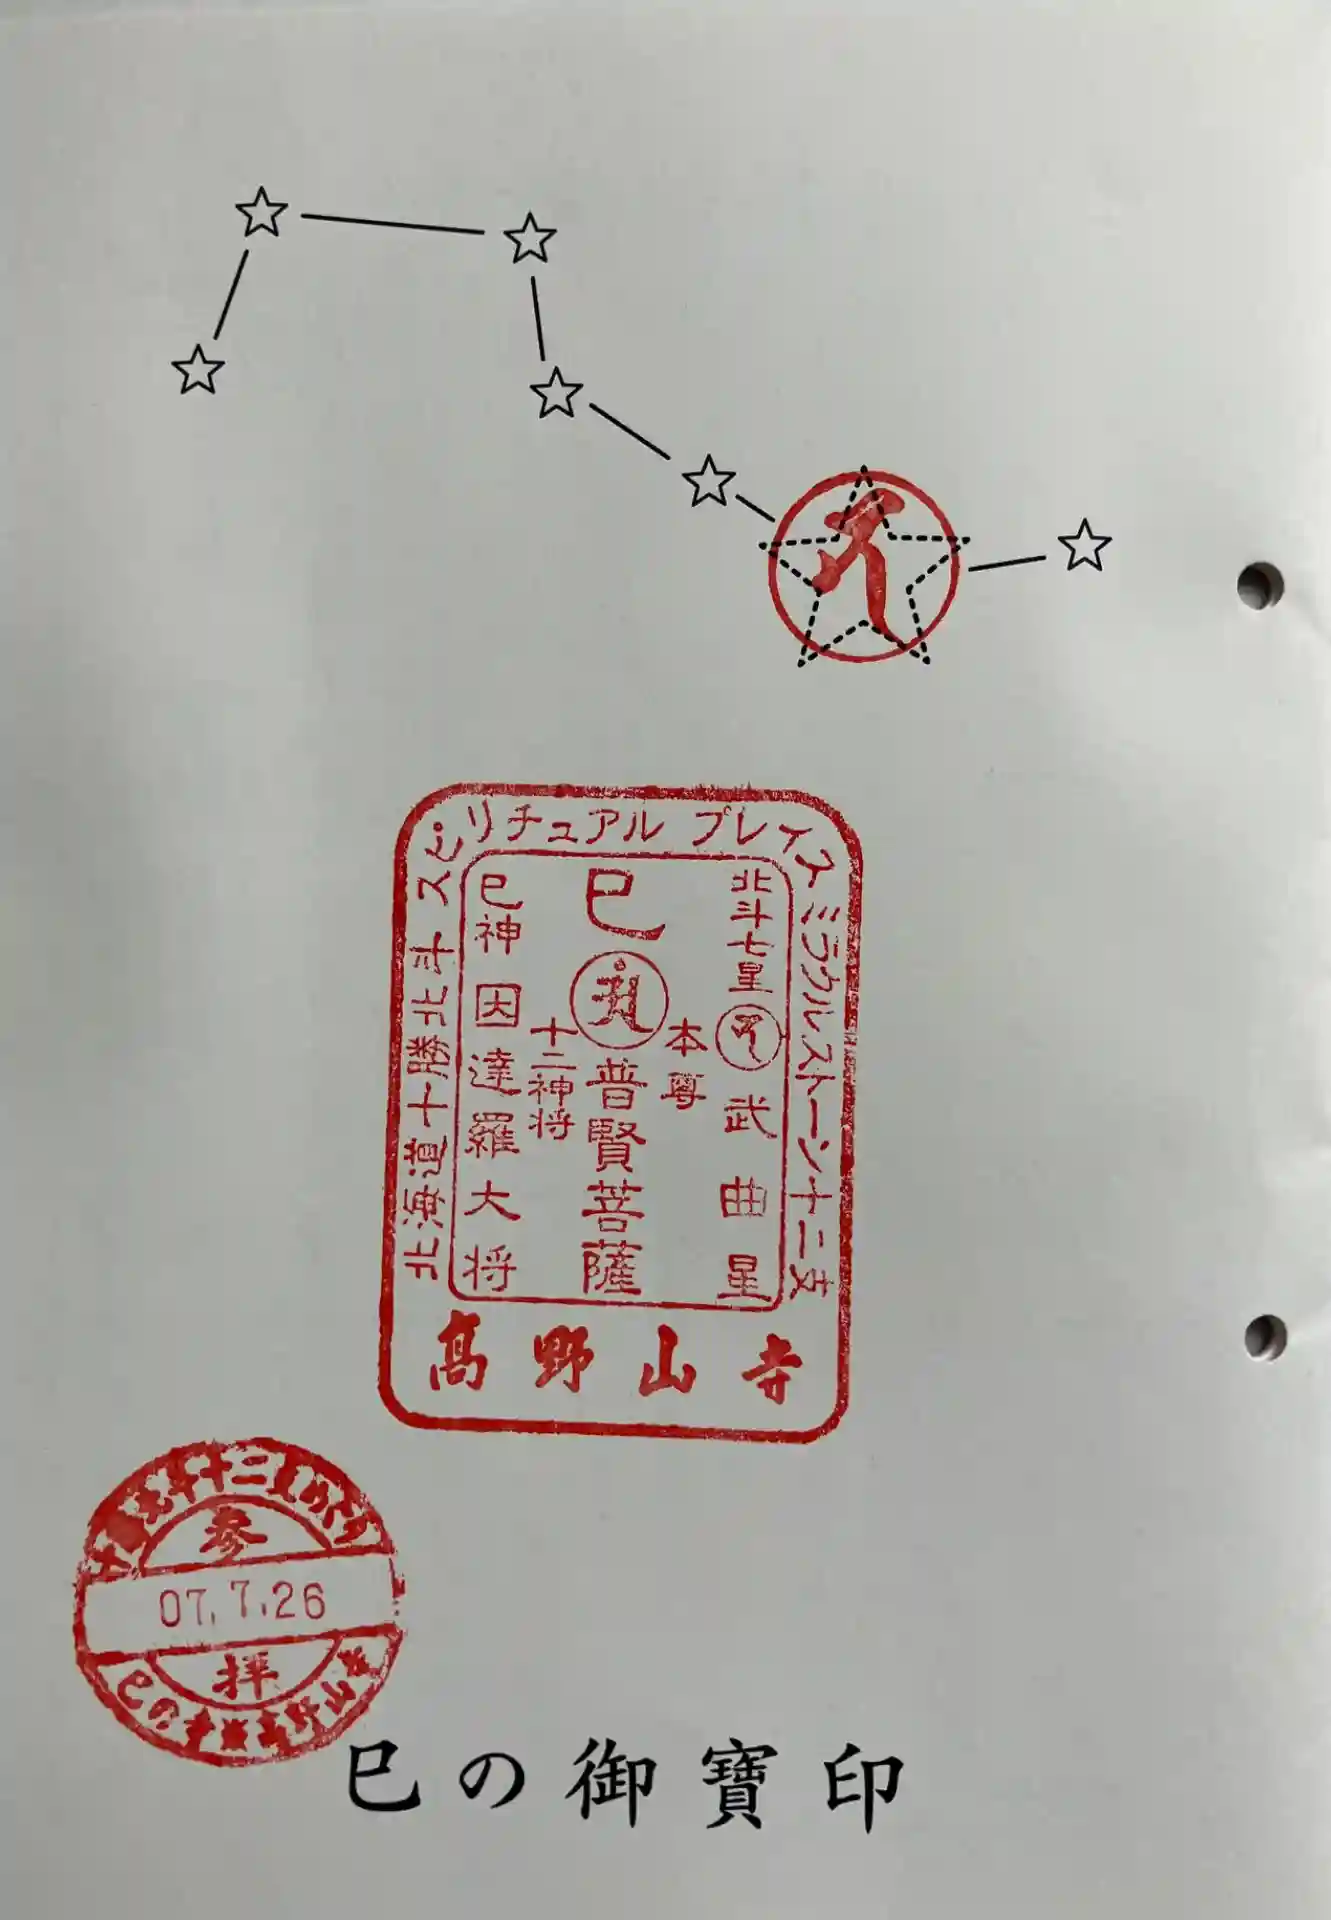 北海道十勝北斗 スピリチュアル プレイス ミラクルストーン十二支
北斗七星 武曲星
本尊
巳
普賢菩薩
十二神将
巳神 因達羅大将
高野山寺
参
07.7.26
拝
巳の御寶印